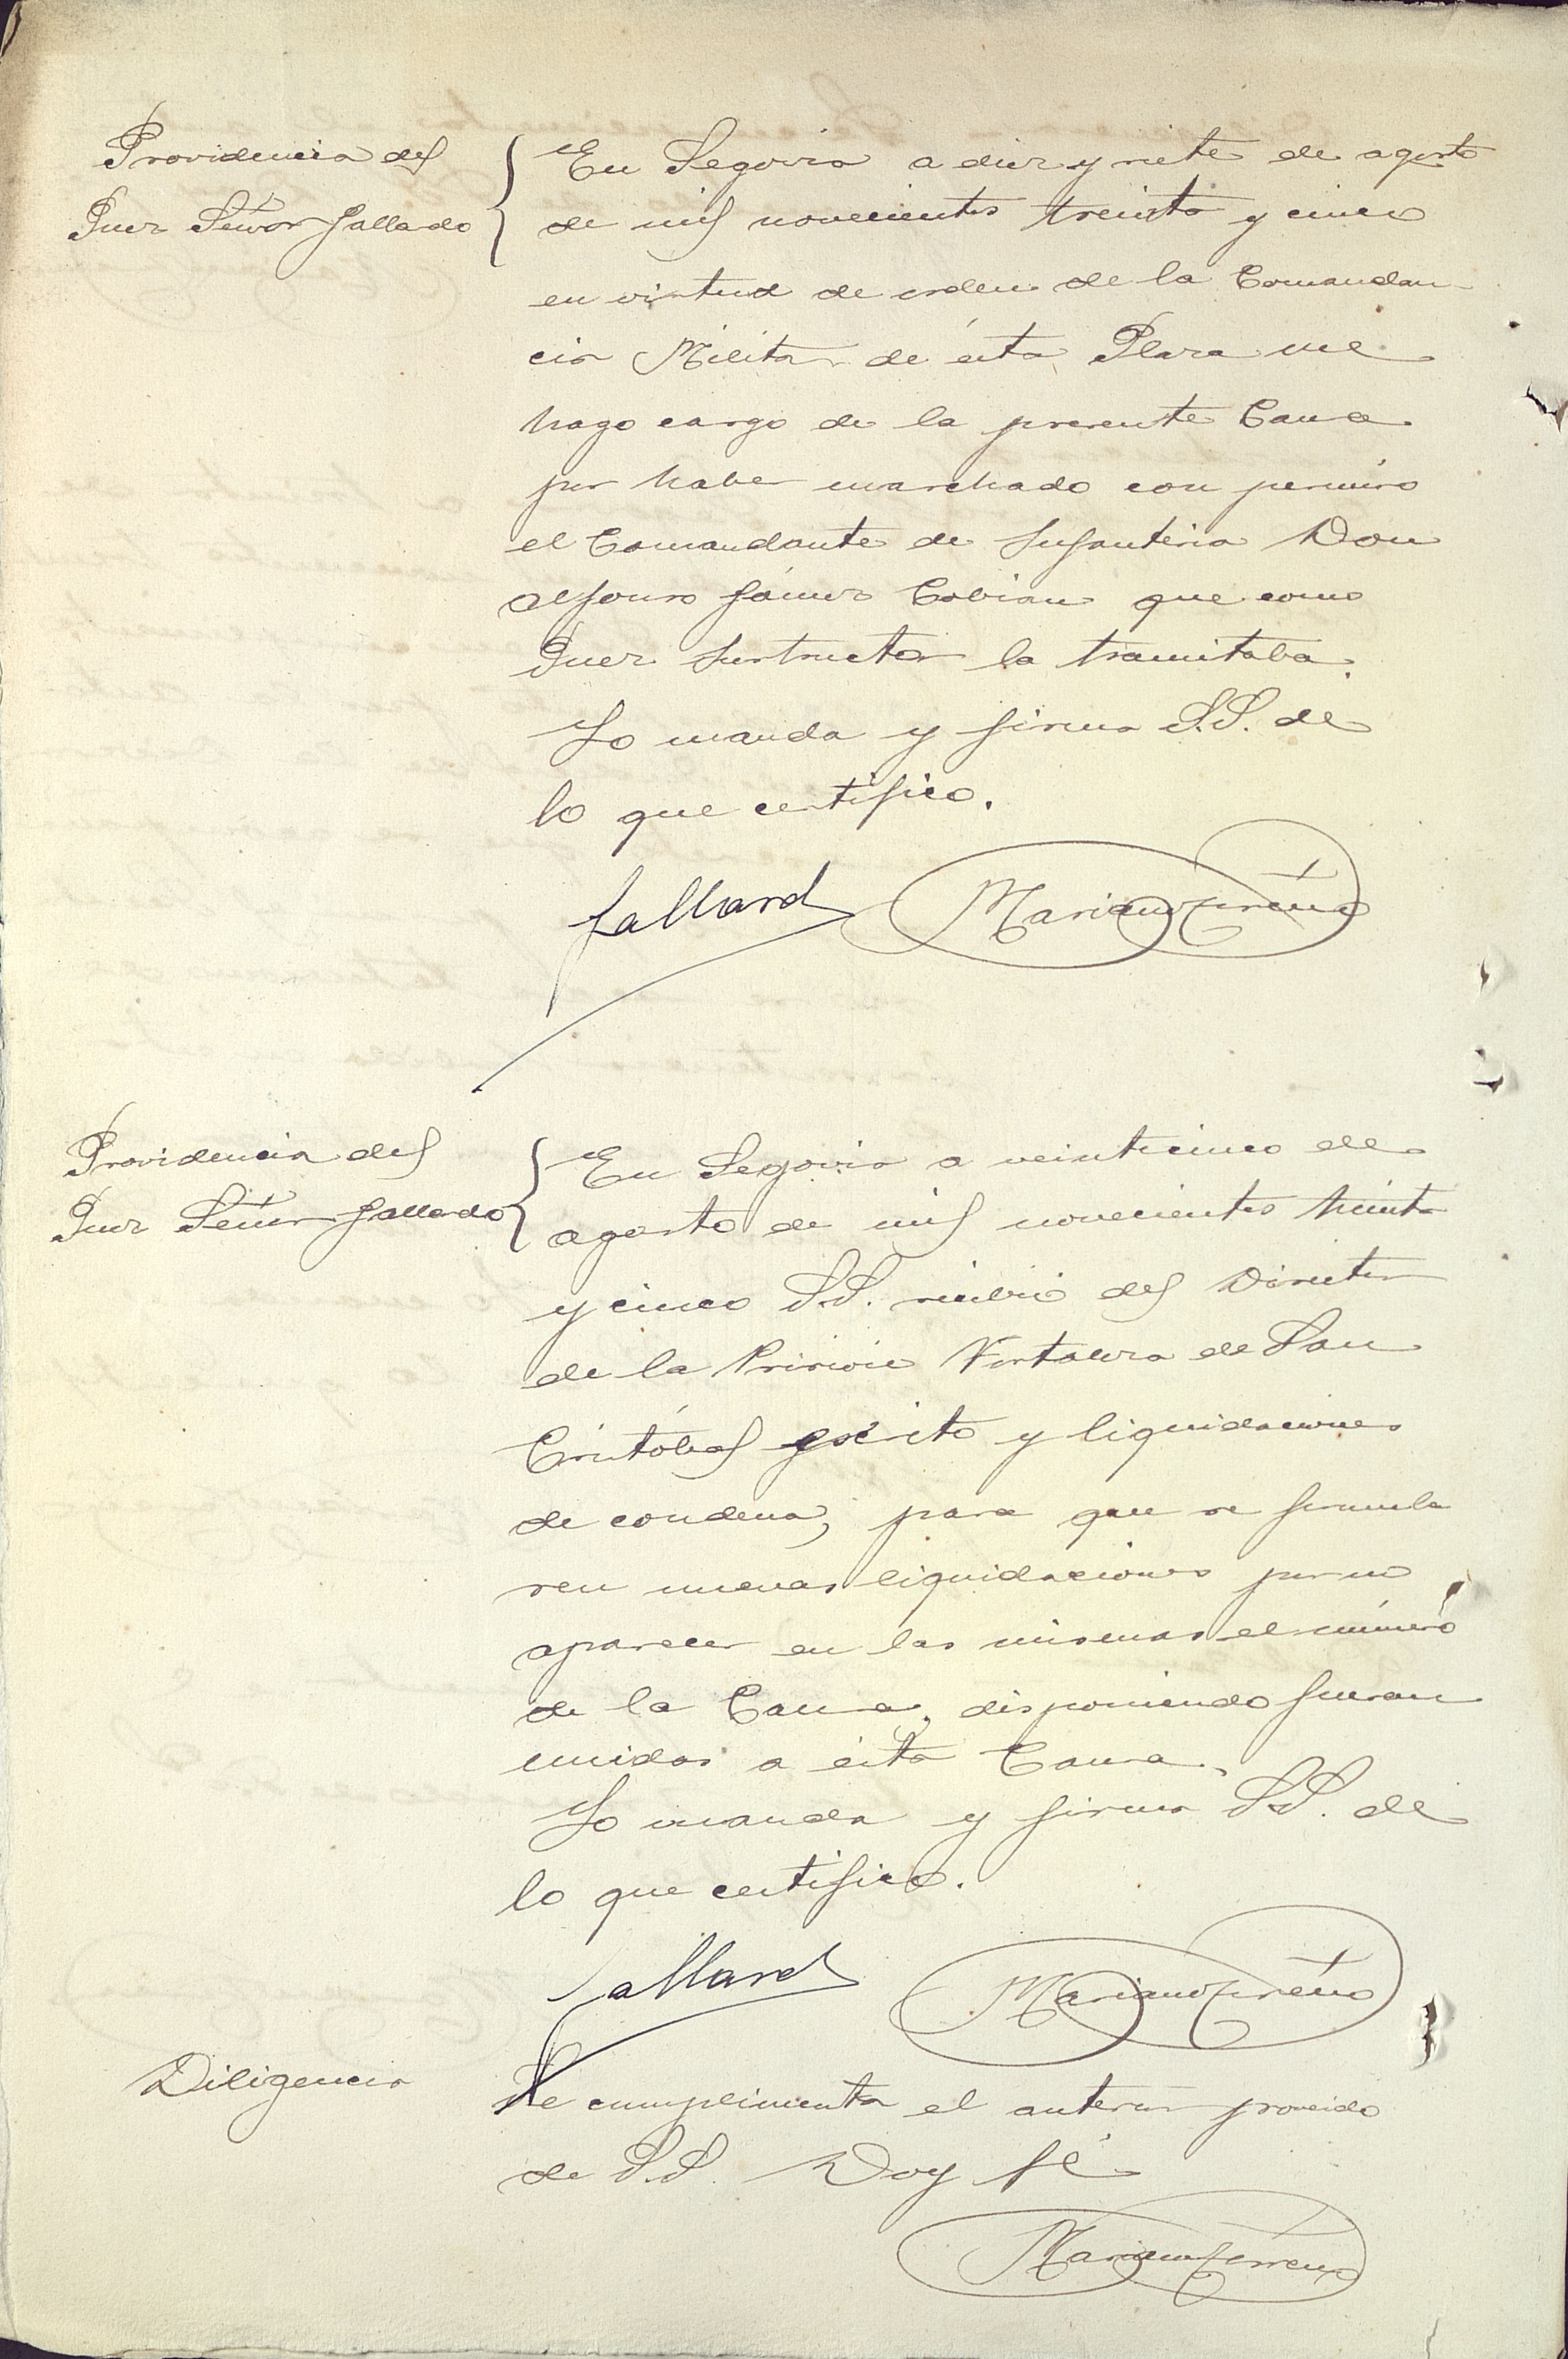 Providencia del
Juez Señor Gallardo
En Segovia a diez y siete de agosto
de mil novecientos treinta y cinco
en virtud de orden de la Comandan
cia Militar de ésta Plaza me
hago cargo de la presente Causa
por haber marchado con permiso
el Comandante de Infantería Don
Alfonso Gámez Cobian que como
Juez Instructor la tramitaba.
Lo manda y firma S.S. de
lo que certifico.
Gallardo Mariano
Providencia del
Juez Señor Gallardo
En Segovia a veinticinco de
agosto de mil novecientos treinta
y cinco S.S. recibió del Director
de la Prisión Fortaleza de San
Cristóbal escrito y liquidaciones
de condena, para que se formula
ren nuevas liquidaciones por no
aparecer en las mismas el número
de la Causa, disponiendo fueran
unidas a ésta Causa.
Lo manda y firma S.S. de
lo que certifico.
Gallardo Mariano
Diligencia
Se cumplimenta el anterior proveido
de S.S. Doy fé
Mariano